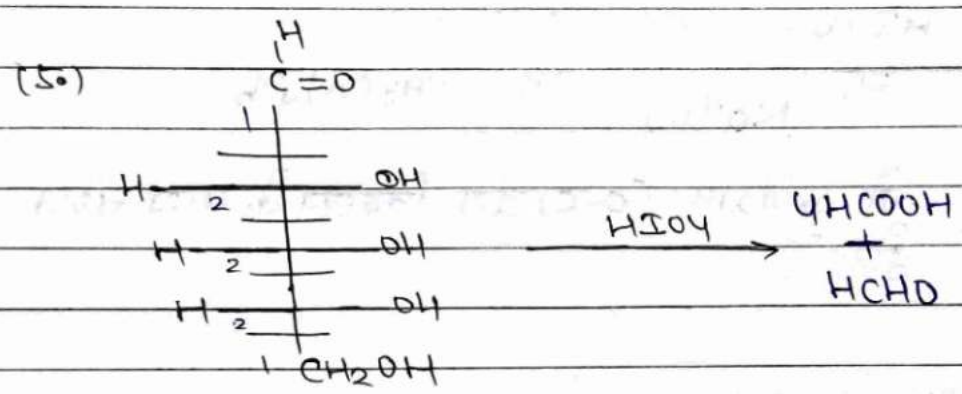 H
(50) C=O
1
H OH
2
H OH
2
H OH
2
1 CH2OH
HIO4
4HCOOH
+
HCHO